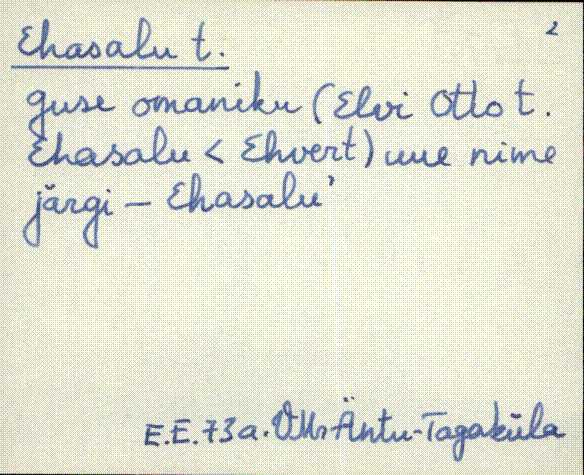 2
Ehasalu t.
guse omaniku (Elvi Otto t.
Ehasalu < Ehvert) uue nime
järgi – Ehasalu'
E.E.73a. VMr Äntu-Tagaküla